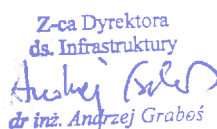 Z-ca Dyrektora
ds. Infrastruktury
Andrzej Graboś
dr inż. Andrzej Graboś